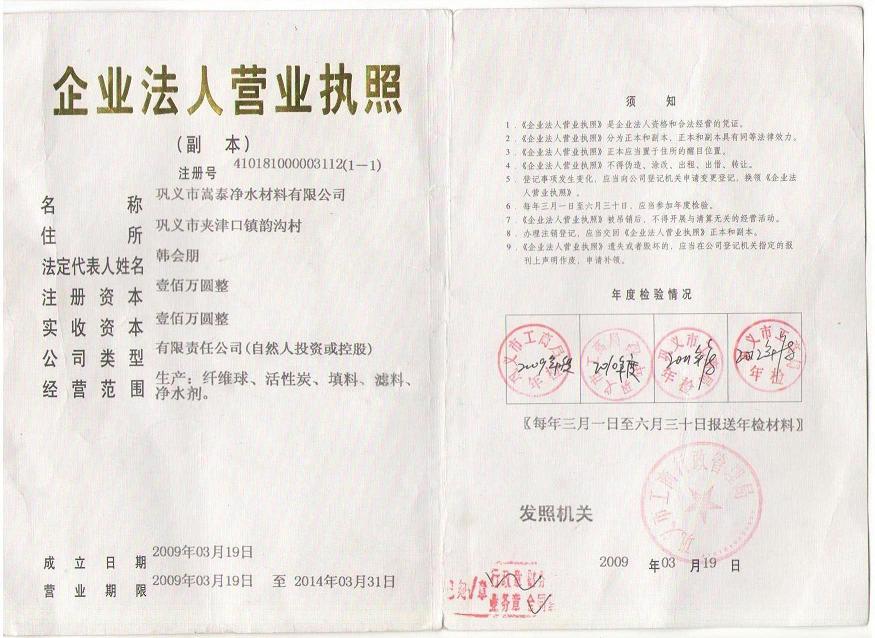 企业法人营业执照
(副 本)
注册号 410181000003112(1—1)
名 称 巩义市嵩泰净水材料有限公司
住 所 巩义市夹津口镇韵沟村
法定代表人姓名 韩会朋
注 册 资 本 壹佰万圆整
实 收 资 本 壹佰万圆整
公 司 类 型 有限责任公司(自然人投资或控股)
经 营 范 围 生产：纤维球、活性炭、填料、滤料、
净水剂。
成 立 日 期 2009年03月19日
营 业 期 限 2009年03月19日 至 2014年03月31日
须 知
1．《企业法人营业执照》是企业法人资格和合法经营的凭证。
2．《企业法人营业执照》分为正本和副本，正本和副本具有同等法律效力。
3．《企业法人营业执照》正本应当置于住所的醒目位置。
4．《企业法人营业执照》不得伪造、涂改、出租、出借、转让。
5．登记事项发生变化，应当向公司登记机关申请变更登记，换领《企业法
人营业执照》。
6．每年三月一日至六月三十日，应当参加年度检验。
7．《企业法人营业执照》被吊销后，不得开展与清算无关的经营活动。
8．办理注销登记，应当交回《企业法人营业执照》正本和副本。
9．《企业法人营业执照》遗失或者毁坏的，应当在公司登记机关指定的报
刊上声明作废，申请补领。
年度检验情况
2009年度
2010年度
2011年度
2012年度
年检
〖每年三月一日至六月三十日报送年检材料〗
巩义市工商行政管理局
发照机关
2009 年03 月19 日
行政章
业务章